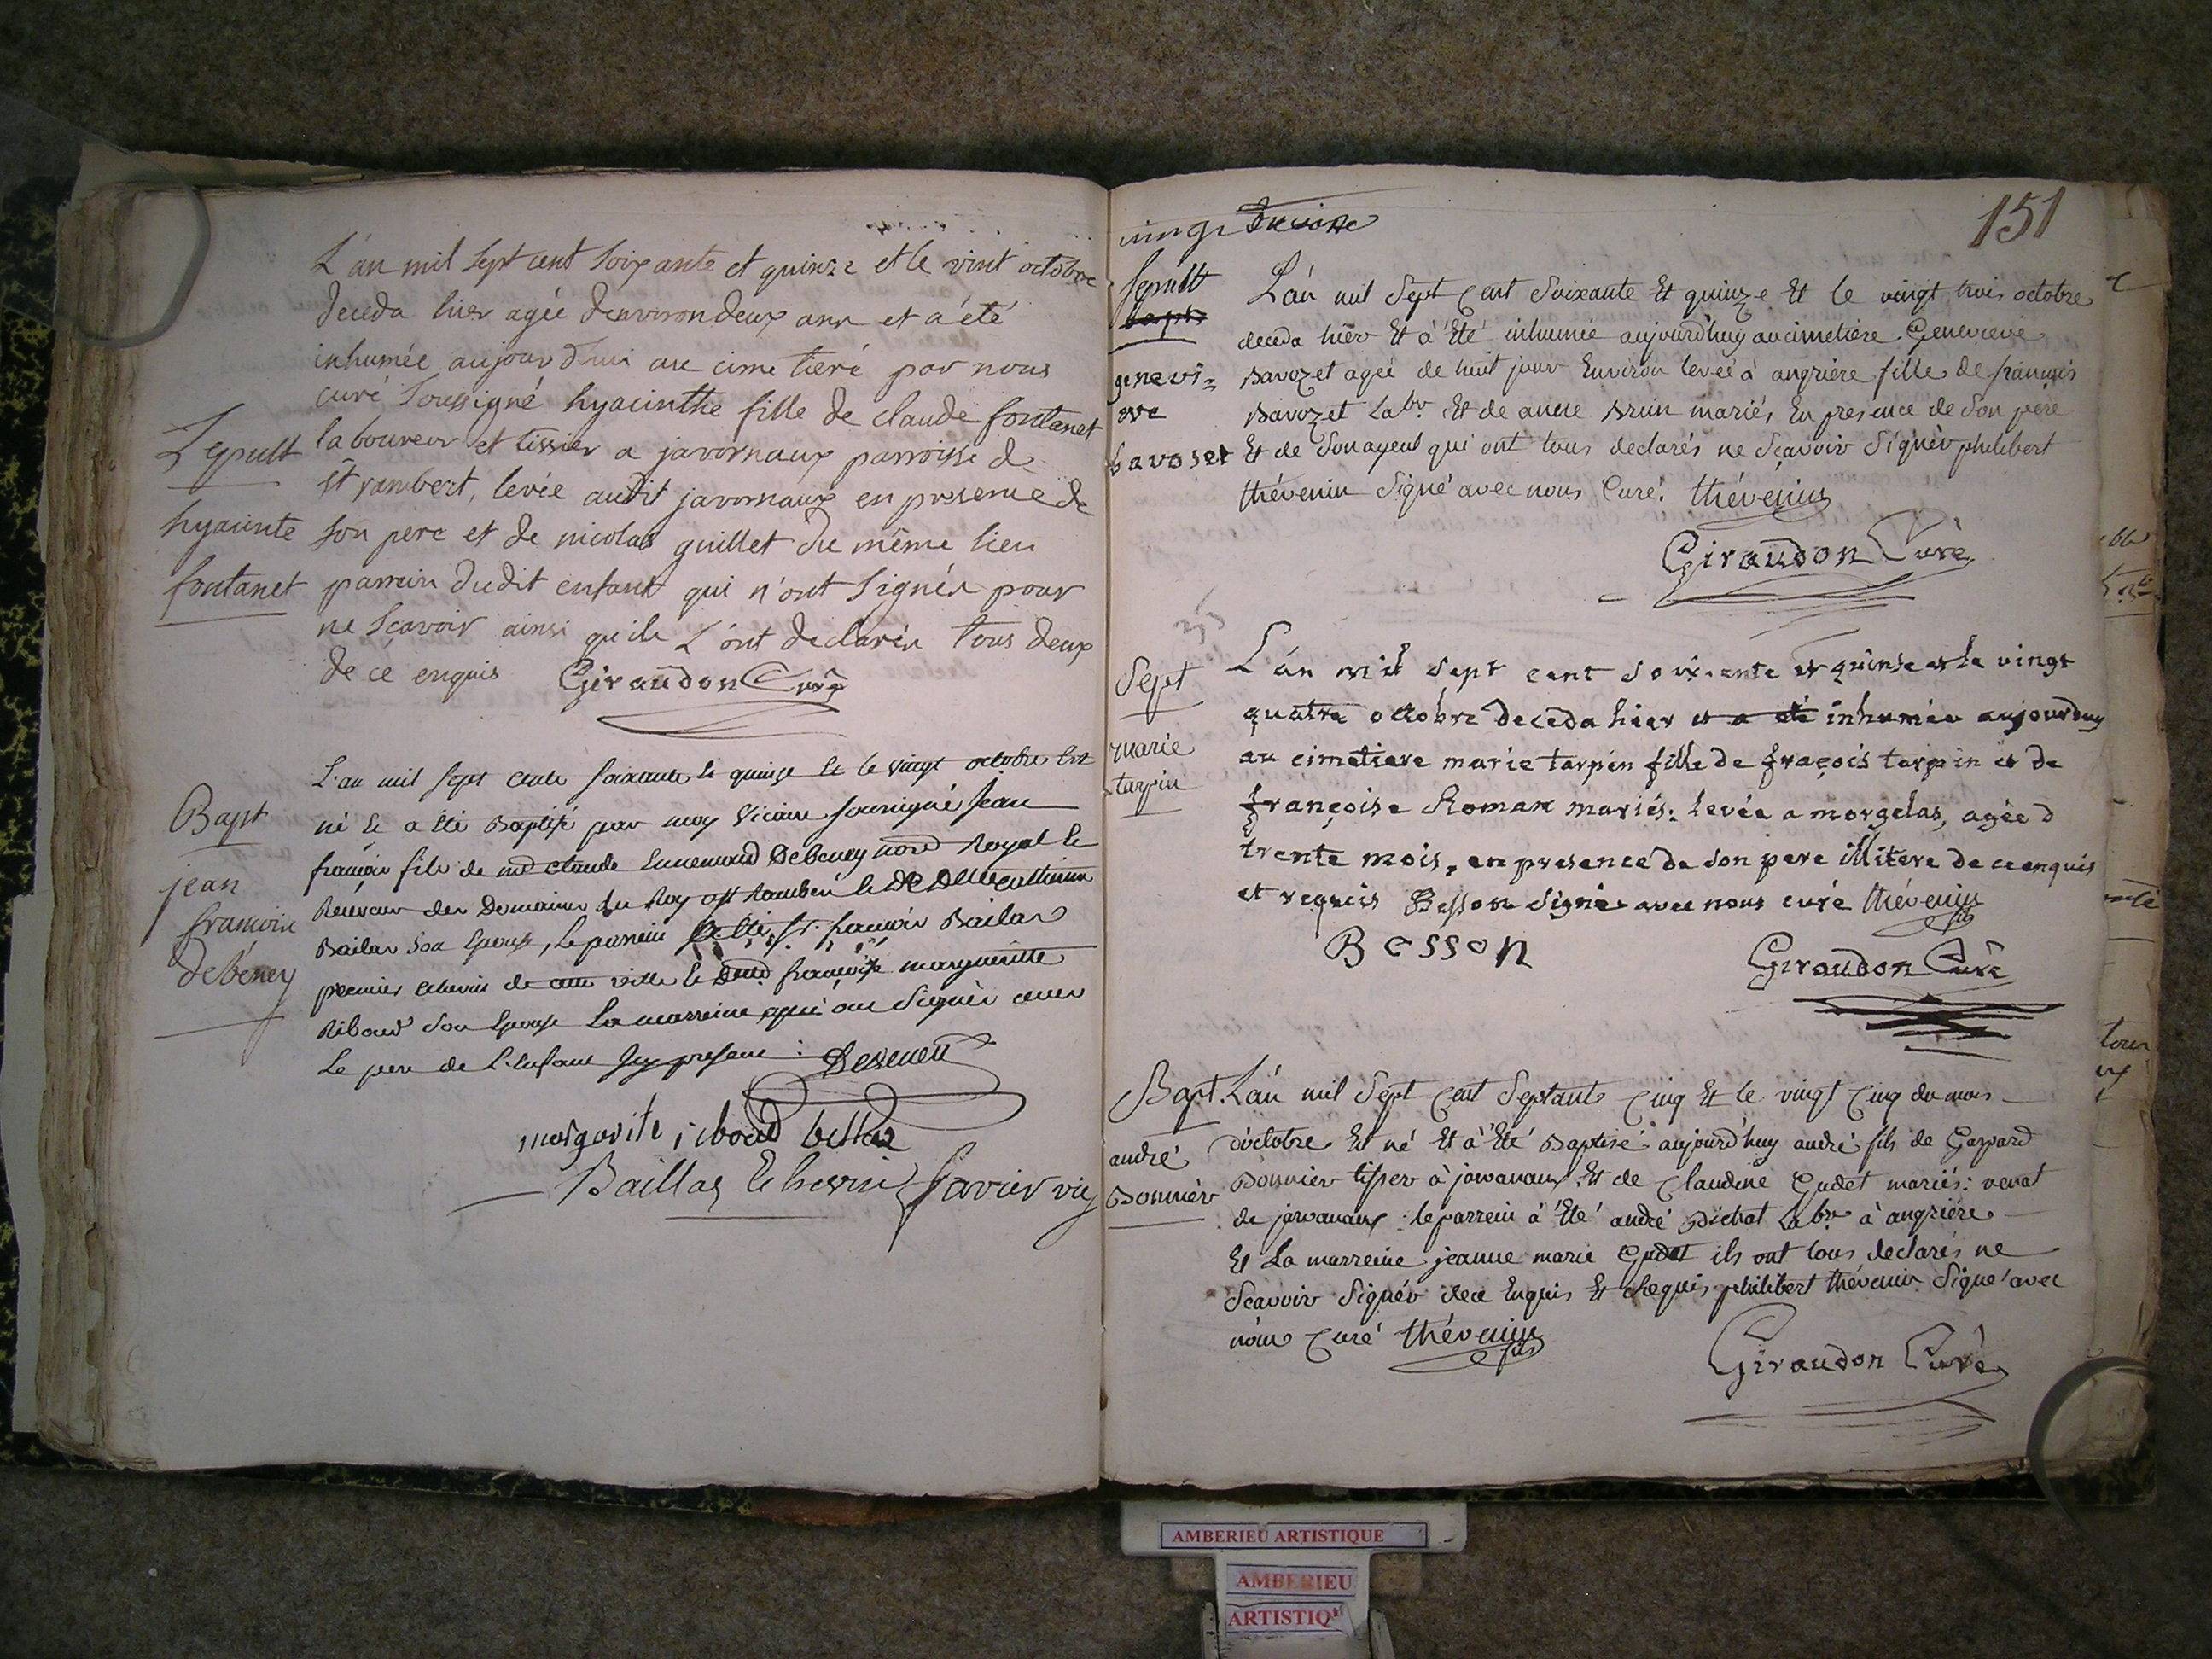 L'an mil sept cent soixante et quinze et le vint octobre
deceda hier agée denviron deux ans et a été
inhumée aujourd'hui au cimetieré par nous
curé soussigné hyacinthe fille de claude fontanet
laboureur et tissier a javornaux parroisse de
st rambert, levée audit javornaux en presence de
son pere et de nicolas guillet du même lieu
parrain dudit enfant qui n'ont signés pour
ne sçavoir ainsi qu'ils l'ont declarés tous deux
de ce enquis Giraudon Curé
Sepult
hyacinte
fontanet
L'an mil sept cents soixante et quinze et le vingt octobre est
né et a été Baptisé par moy vicaire soussigné jean
françois fils de me claude Debeney nore Royal et
Receveur des Domaines du Roy a st Rambert et de Delle
Bailar son epouse, le parrein a été sr. françois Bailar
premier echevin de cette ville et Delle françoise margueritte
Riboud son epouse la marreine qui ont signés avec
le pere de l'enfant icy present : Debeney
margorite riboud
Baillas Echevin favier vic
Bapt
jean
françois
debeney
151
vingt
Sepult
bapt
genevi=
eve
bavozet
L'an mil sept cent soixante Et quinze Et le vingt trois octobre
deceda hier Et à Eté inhumée aujourd'huy au cimetière Genevieve
Bavozet agée de huit jour Environ levée à angrière fille de françois
Bavozet Labr. Et de anne Brun mariés En presence de son pere
Et de son ayeul qui ont tous declarés ne sçavoir signer philibert
thévenin signé avec nous Curé. thévenin
Giraudon Curé
Sept
marie
tarpin
L'an mil sept cent soixante et quinse et le vingt
quatre octobre deceda hier et a été inhumée aujourduy
au cimetiere marie tarpin fille de fraçois tarpin et de
françoise Roman mariés: levée a morgelas, agée d
trente mois, en presence de son pere illitere de ce enquis
et requis Besson signé avec nous curé thévenin
Besson Giraudon Curé
Bapt.
andré
Bonnier
L'an mil sept cent septante cinq Et le vingt cinq du mois
d'octobre Est né Et à Eté Baptisé aujourd'huy andré fils de Gaspard
Bonnier tisser à javornaux Et de Claudine Gudet mariés: venat
de javornaux le parrein à Eté andré Dichat Labr. à angrière
Et la marreine jeanne marie Gudet ils ont tous declarés ne
sçavoir signér dece Enquis Et Requis philibert thévenin signé avec
nous Curé thévenin fils
Giraudon Curé
AMBERIEU ARTISTIQUE
AMBERIEU
ARTISTIQ